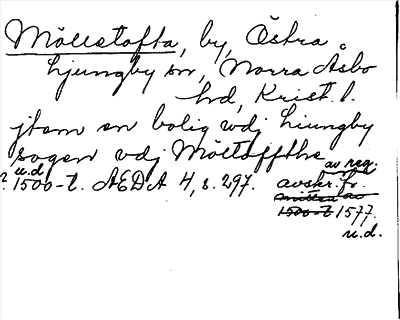 Möllstofta, by, Östra
Ljungby sn, Norra Åsbo
hd, Krist. l.
jtem en bolig vdj Liungby
sogen vdj Möltoffthe
? u.d. 1500-t. AEDA 4, s. 297. av reg.
avskr. fr.
mitten av
1500-t 1577.
u.d.